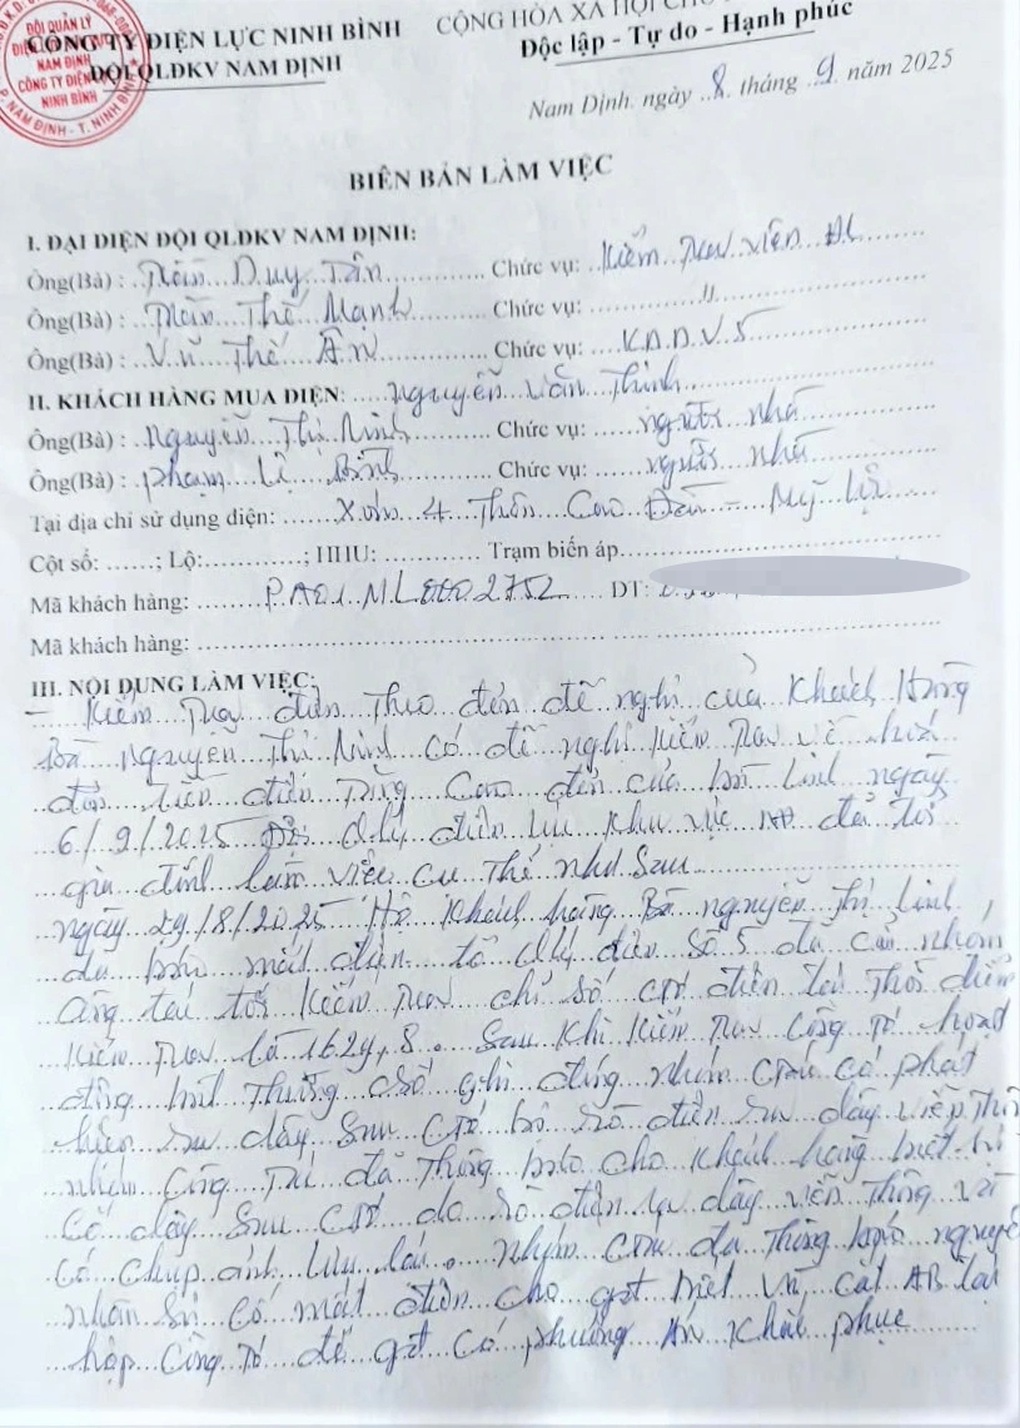 ĐỘI QUẢN LÝ
NAM ĐỊNH
CÔNG TY ĐIỆN
NINH BÌNH
P. NAM ĐỊNH - T. NINH BÌNH
CÔNG TY ĐIỆN LỰC NINH BÌNH
ĐỘI QLĐKV NAM ĐỊNH
CỘNG HÒA XÃ HỘI
Độc lập - Tự do - Hạnh phúc
Nam Định, ngày 8 tháng 9 năm 2025
BIÊN BẢN LÀM VIỆC
I. ĐẠI DIỆN ĐỘI QLĐKV NAM ĐỊNH:
Ông(Bà) : Trần Duy Tân Chức vụ: Kiểm Tra viên ĐL
Ông(Bà) : Trần Thế Mạnh Chức vụ: "
Ông(Bà) : Vũ Thế Ân Chức vụ: K.D.D.V.5
II. KHÁCH HÀNG MUA ĐIỆN: Nguyễn Văn Thinh
Ông(Bà) : Nguyễn Thị Ninh Chức vụ: người nhà
Ông(Bà) : Phạm Lệ Bình Chức vụ: người nhà
Tại địa chỉ sử dụng điện: Xóm 4 Thôn Cao Đài - Mỹ Lộc
Cột số: ; Lộ: ; HHU: Trạm biến áp
Mã khách hàng: PA01ML0002752 ĐT:
Mã khách hàng:
III. NỘI DUNG LÀM VIỆC:
- Kiểm Tra điện Theo đơn đề nghị của Khách Hàng
Bà Nguyễn Thị Ninh có đề nghị Kiểm Tra về hoá
đơn Tiền điện Tăng Cao đơn của bà Linh ngày
6/9/2025 Đội Qlý điện lực khu vực NĐ đã tới
gia đình làm việc cụ Thể như Sau
ngày 29/8/2025 Hộ Khách hàng Bà nguyễn Thị Linh,
đã báo mất điện tổ Qlý điện số 5 đã cử nhóm
công tác tới Kiểm Tra chỉ số CTơ điện tại Thời điểm
Kiểm Tra là 1629,8. Sau Khi Kiểm Tra Công Tơ hoạt
động bình Thường Số ghi đúng nhóm CTác có phát
hiện ra dây Sau CTơ bị rò điện ra dây viễn Thông
nhóm Công Tác đã Thông báo cho Khách hàng biết
Có dây Sau CTơ do rò điện ra dây viễn Thông và
Có chụp ảnh lưu lại. nhóm CTác đã Thông báo nguyên
nhân Sự Cố mất điện cho gđ biết và cắt AB tại
hộp Công Tơ để gđ Có phương Án Khắc phục